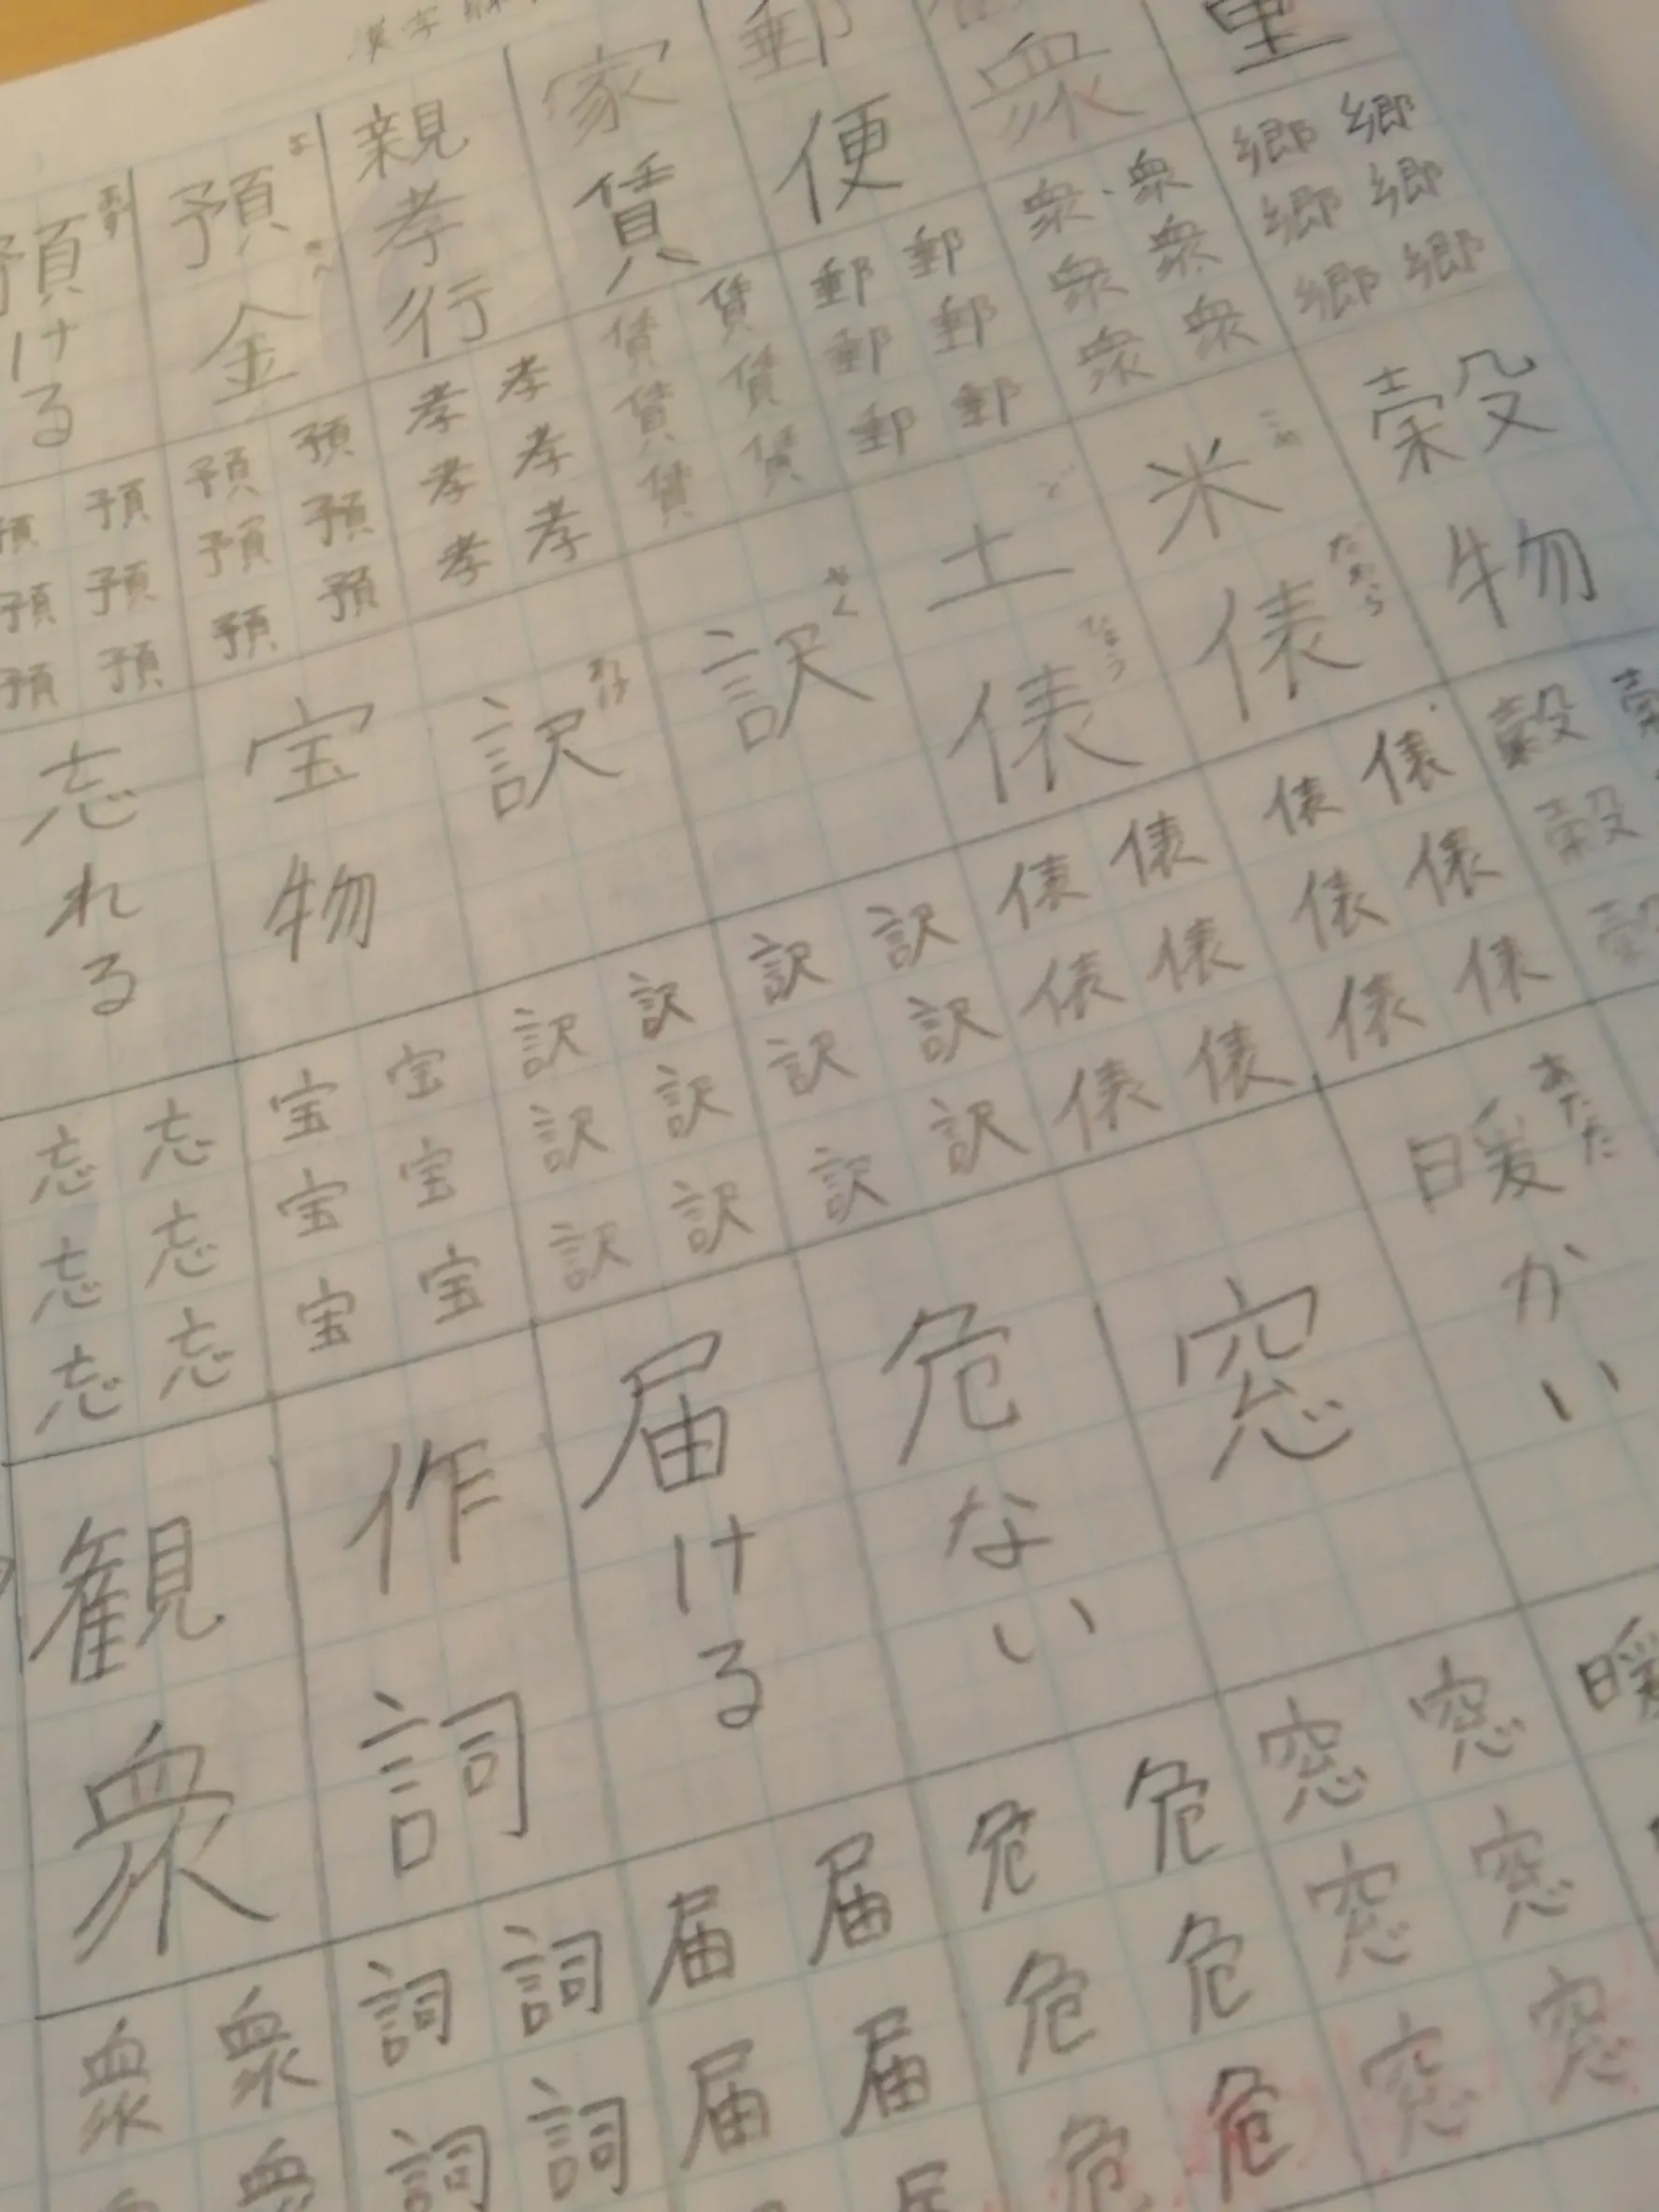 漢字
里
郷郷郷
郷郷郷
衆
衆衆衆
衆衆衆
郵便
郵郵郵
郵郵郵
家賃
賃賃賃
賃賃賃
親孝行
孝孝孝
孝孝孝
預金
よ
預預預
預預預
預ける
預預預
預預預
穀物
穀
穀穀
米俵
こめ
たわら
俵俵俵
俵俵俵
土俵
ど
ひょう
俵俵俵
俵俵俵
訳
やく
訳訳訳
訳訳訳
訳
わけ
訳訳訳
訳訳訳
宝物
宝宝宝
宝宝宝
忘れる
忘忘忘
忘忘忘
暖かい
あたた
暖
窓
窓窓窓
窓窓窓
危ない
危危危
危危危
届ける
届届届
届届
作詞
詞詞
詞詞
観衆
衆衆
衆